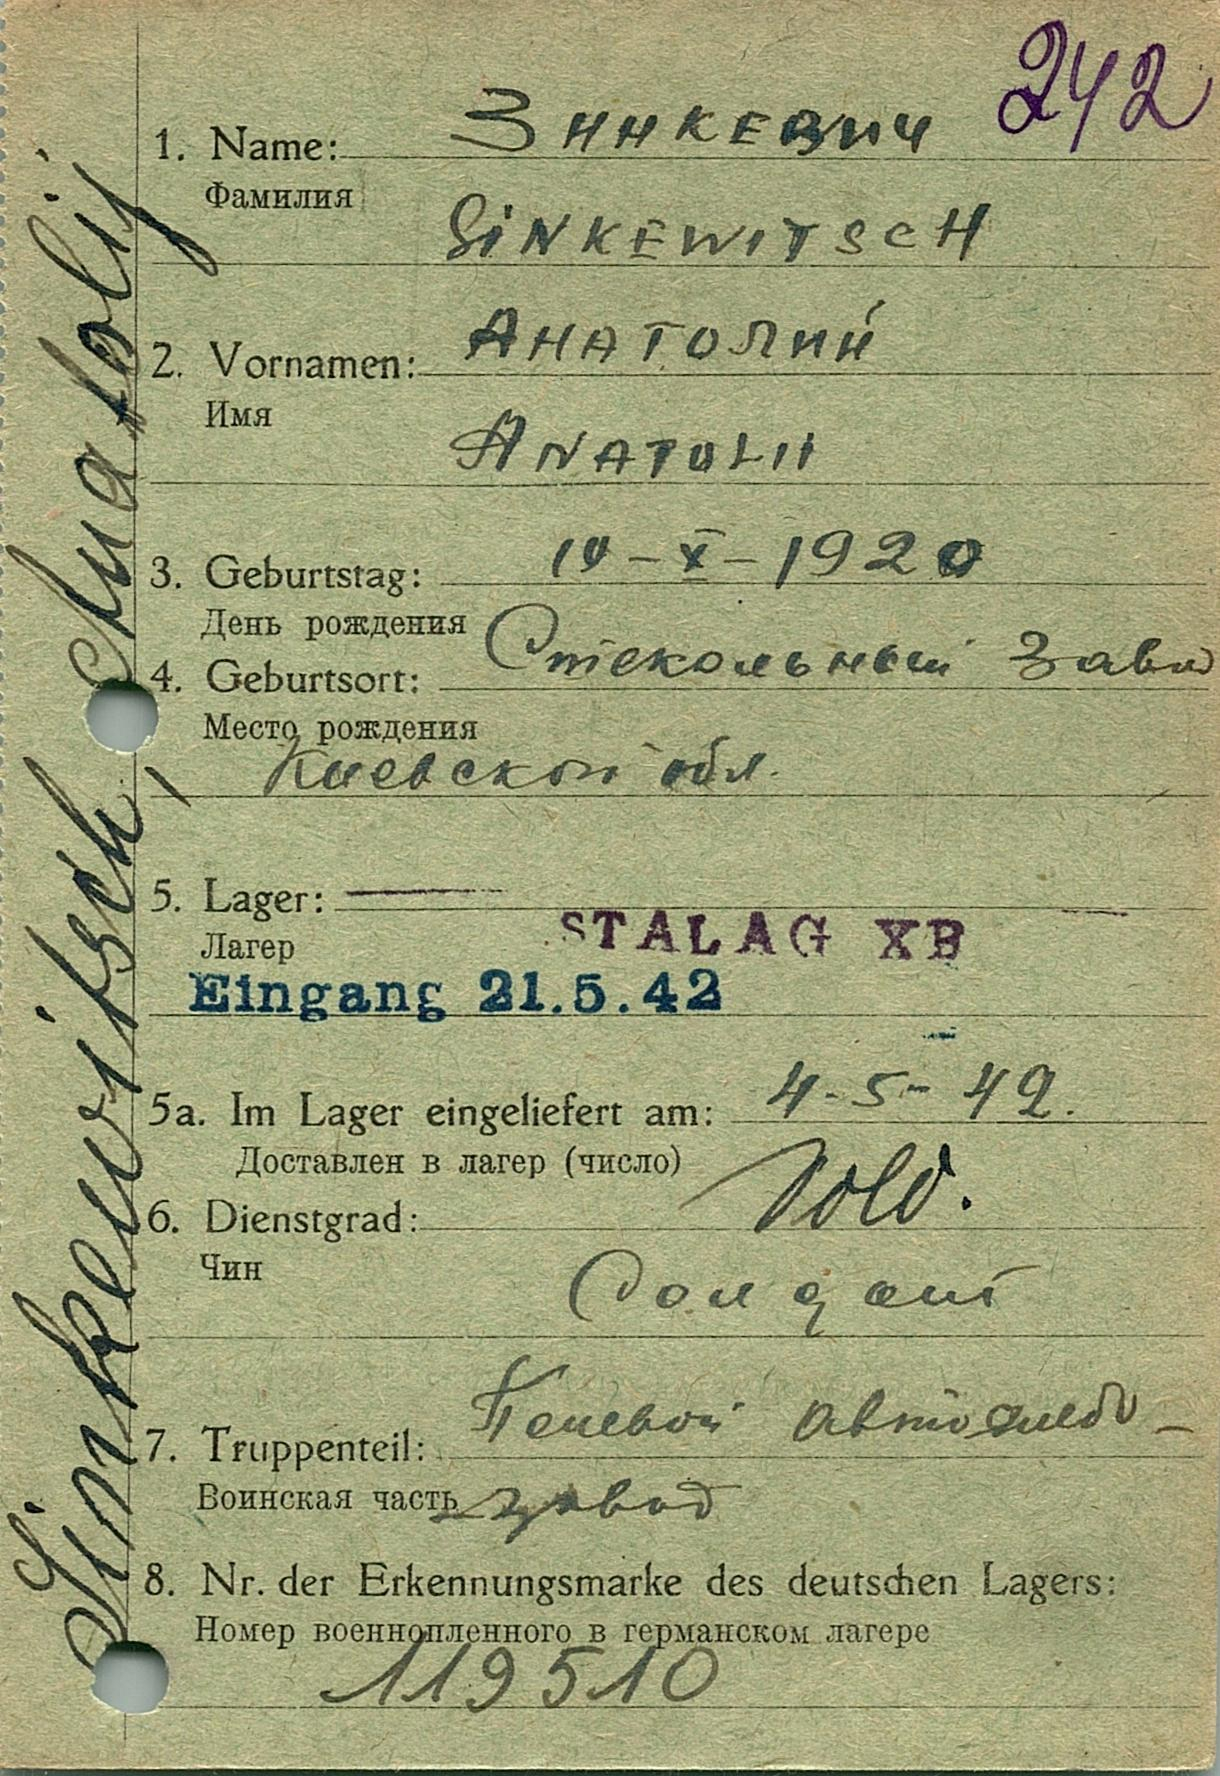 242
1. Name: Зинкевич
Фамилия
Sinkewitsch
2. Vornamen: Анатолий
Имя
Anatolii
3. Geburtstag: 14-X-1920
День рождения
4. Geburtsort: Стекольный Завод
Место рождения
Киевской обл.
5. Lager:
Лагер
STALAG XB
Eingang 21.5.42
5a. Im Lager eingeliefert am: 4-5-42.
Доставлен в лагер (число)
6. Dienstgrad: Sold.
Чин
Солдат
7. Truppenteil:
Воинская часть взвод
8. Nr. der Erkennungsmarke des deutschen Lagers:
Номер военнопленного в германском лагере
119510
Sinkewitsch, Anatolij